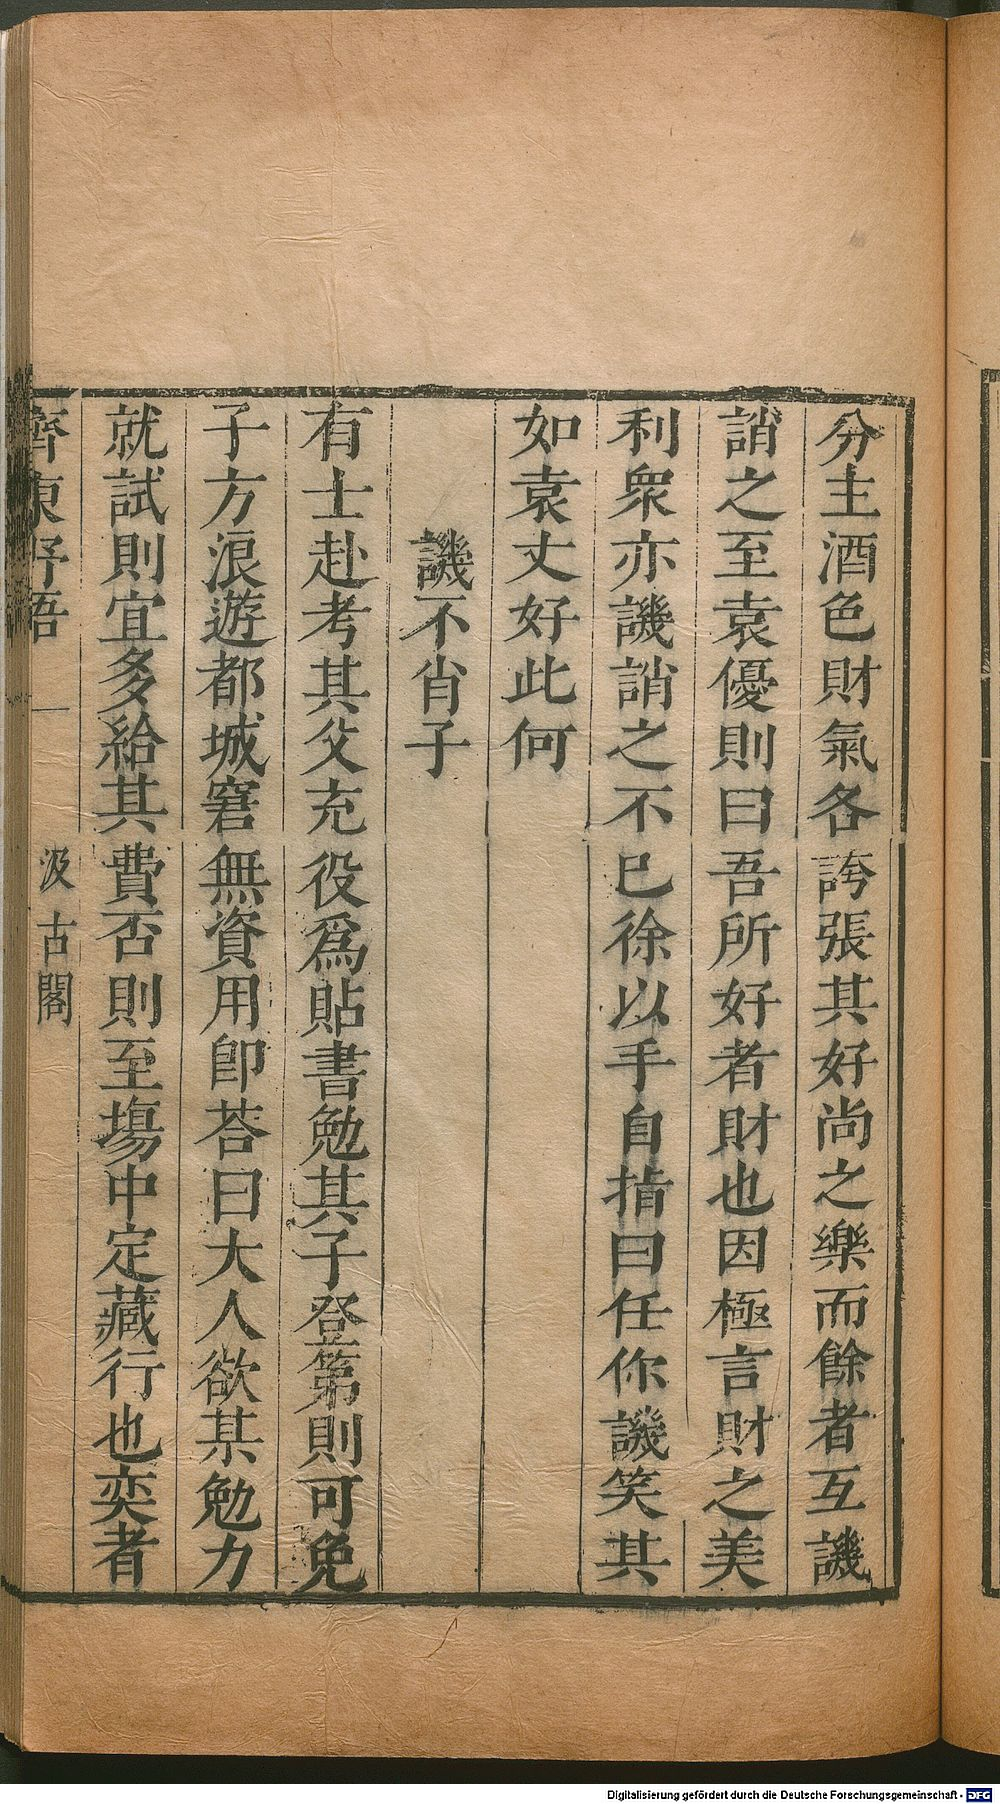 分主酒色財氣各誇張其好尚之樂而餘者互譏
誚之至袁優則曰吾所好者財也因極言財之美
利衆亦譏誚之不已徐以手自指曰任你譏笑其
如袁丈好此何
譏不肖子
有士赴考其父充役爲貼書勉其子登第則可免
子方浪遊都城窘無資用卽荅曰大人欲某勉力
就試則宜多給其費否則至塲中定藏行也奕者
齊東野語
汲古閣
Digitalisierung gefördert durch die Deutsche Forschungsgemeinschaft - DFG